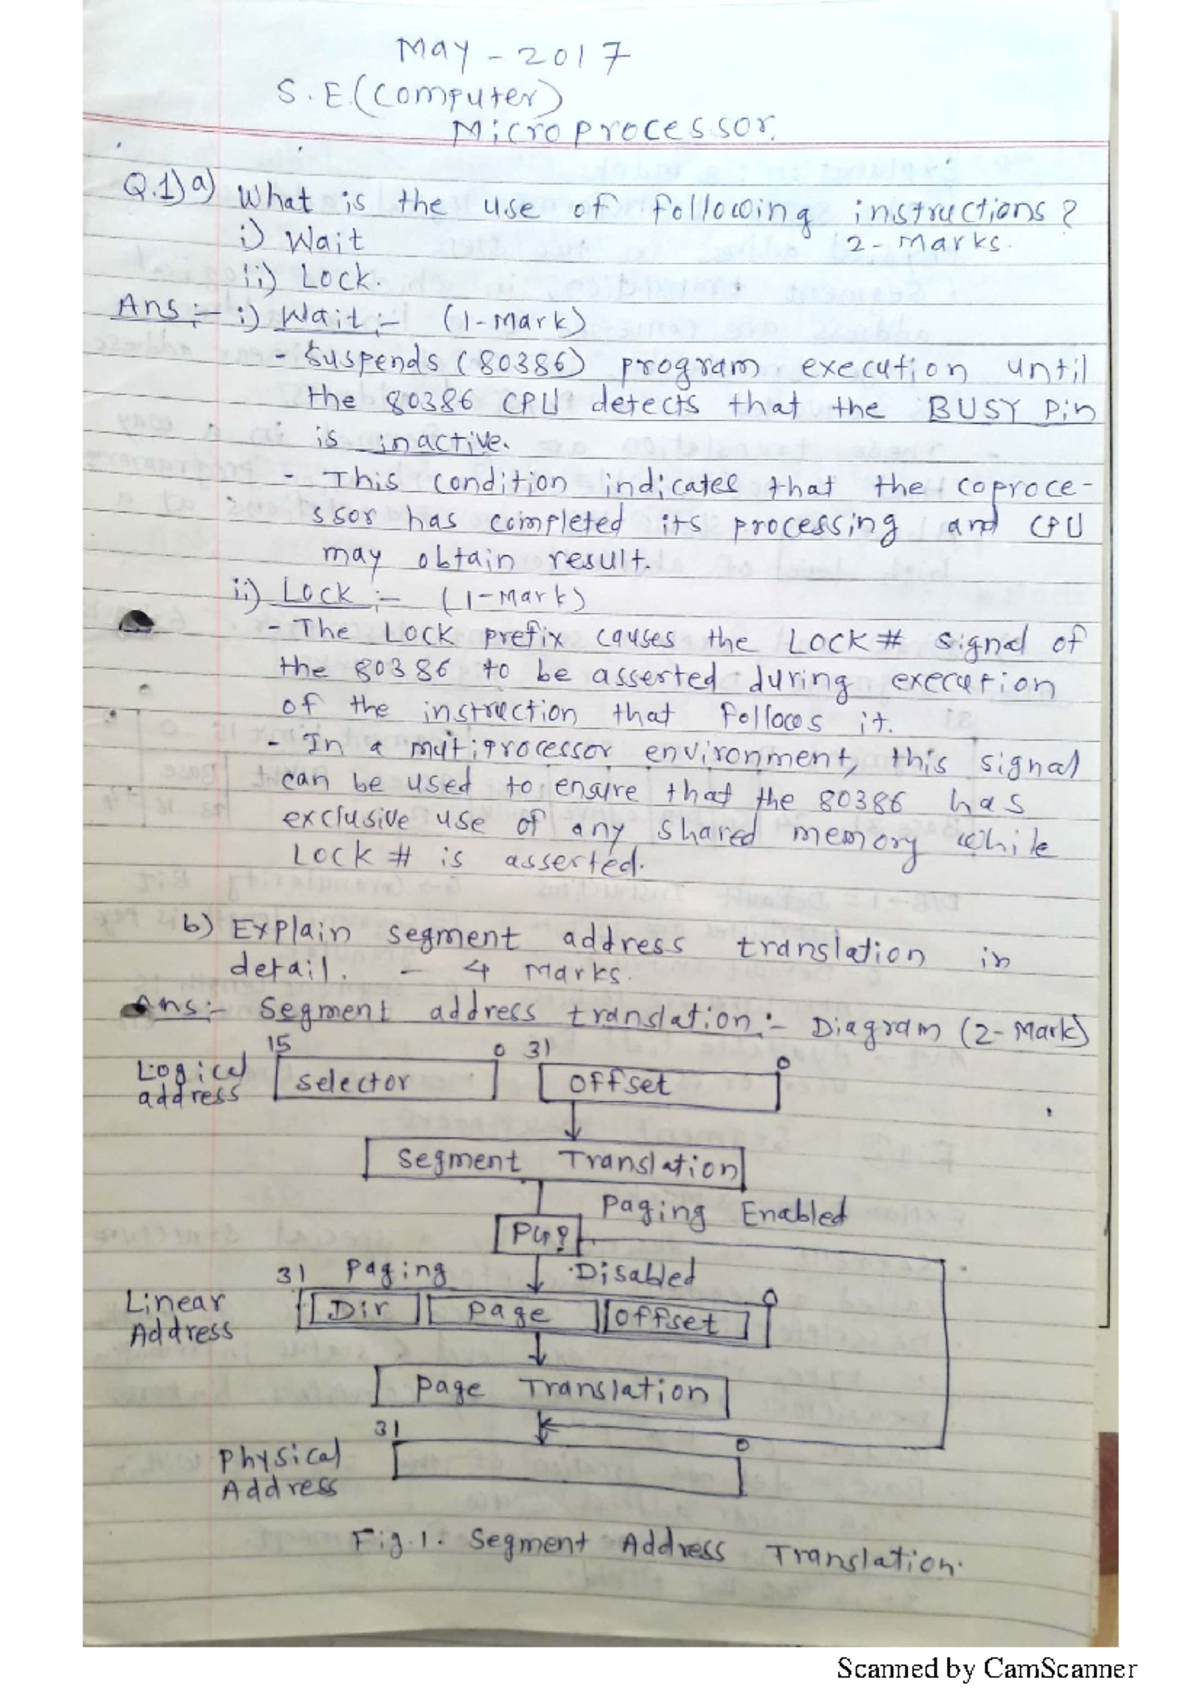 May - 2017
S.E.(Computer)
Microprocessor.
Q.1)a) What is the use of following instructions?
i) Wait 2-Marks.
ii) Lock.
Ans:- i) Wait:- (1-Mark)
- Suspends (80386) program execution until
the 80386 CPU detects that the BUSY Pin
is inactive.
- This condition indicates that the coproce-
ssor has completed its processing and CPU
may obtain result.
ii) Lock:- (1-Mark)
- The LOCK prefix causes the LOCK# signal of
the 80386 to be asserted during execution
of the instruction that follows it.
- In a multiprocessor environment, this signal
can be used to ensure that the 80386 has
exclusive use of any shared memory while
LOCK# is asserted.
b) Explain segment address translation in
detail. - 4 Marks.
Ans:- Segment address translation:- Diagram (2-Mark)
15 0 31 0
Logical address selector offset
Segment Translation
Paging Enabled
PG?
31 Paging Disabled 0
Linear Address Dir Page offset
Page Translation
31 0
Physical Address
Fig.1. Segment Address Translation.
Scanned by CamScanner